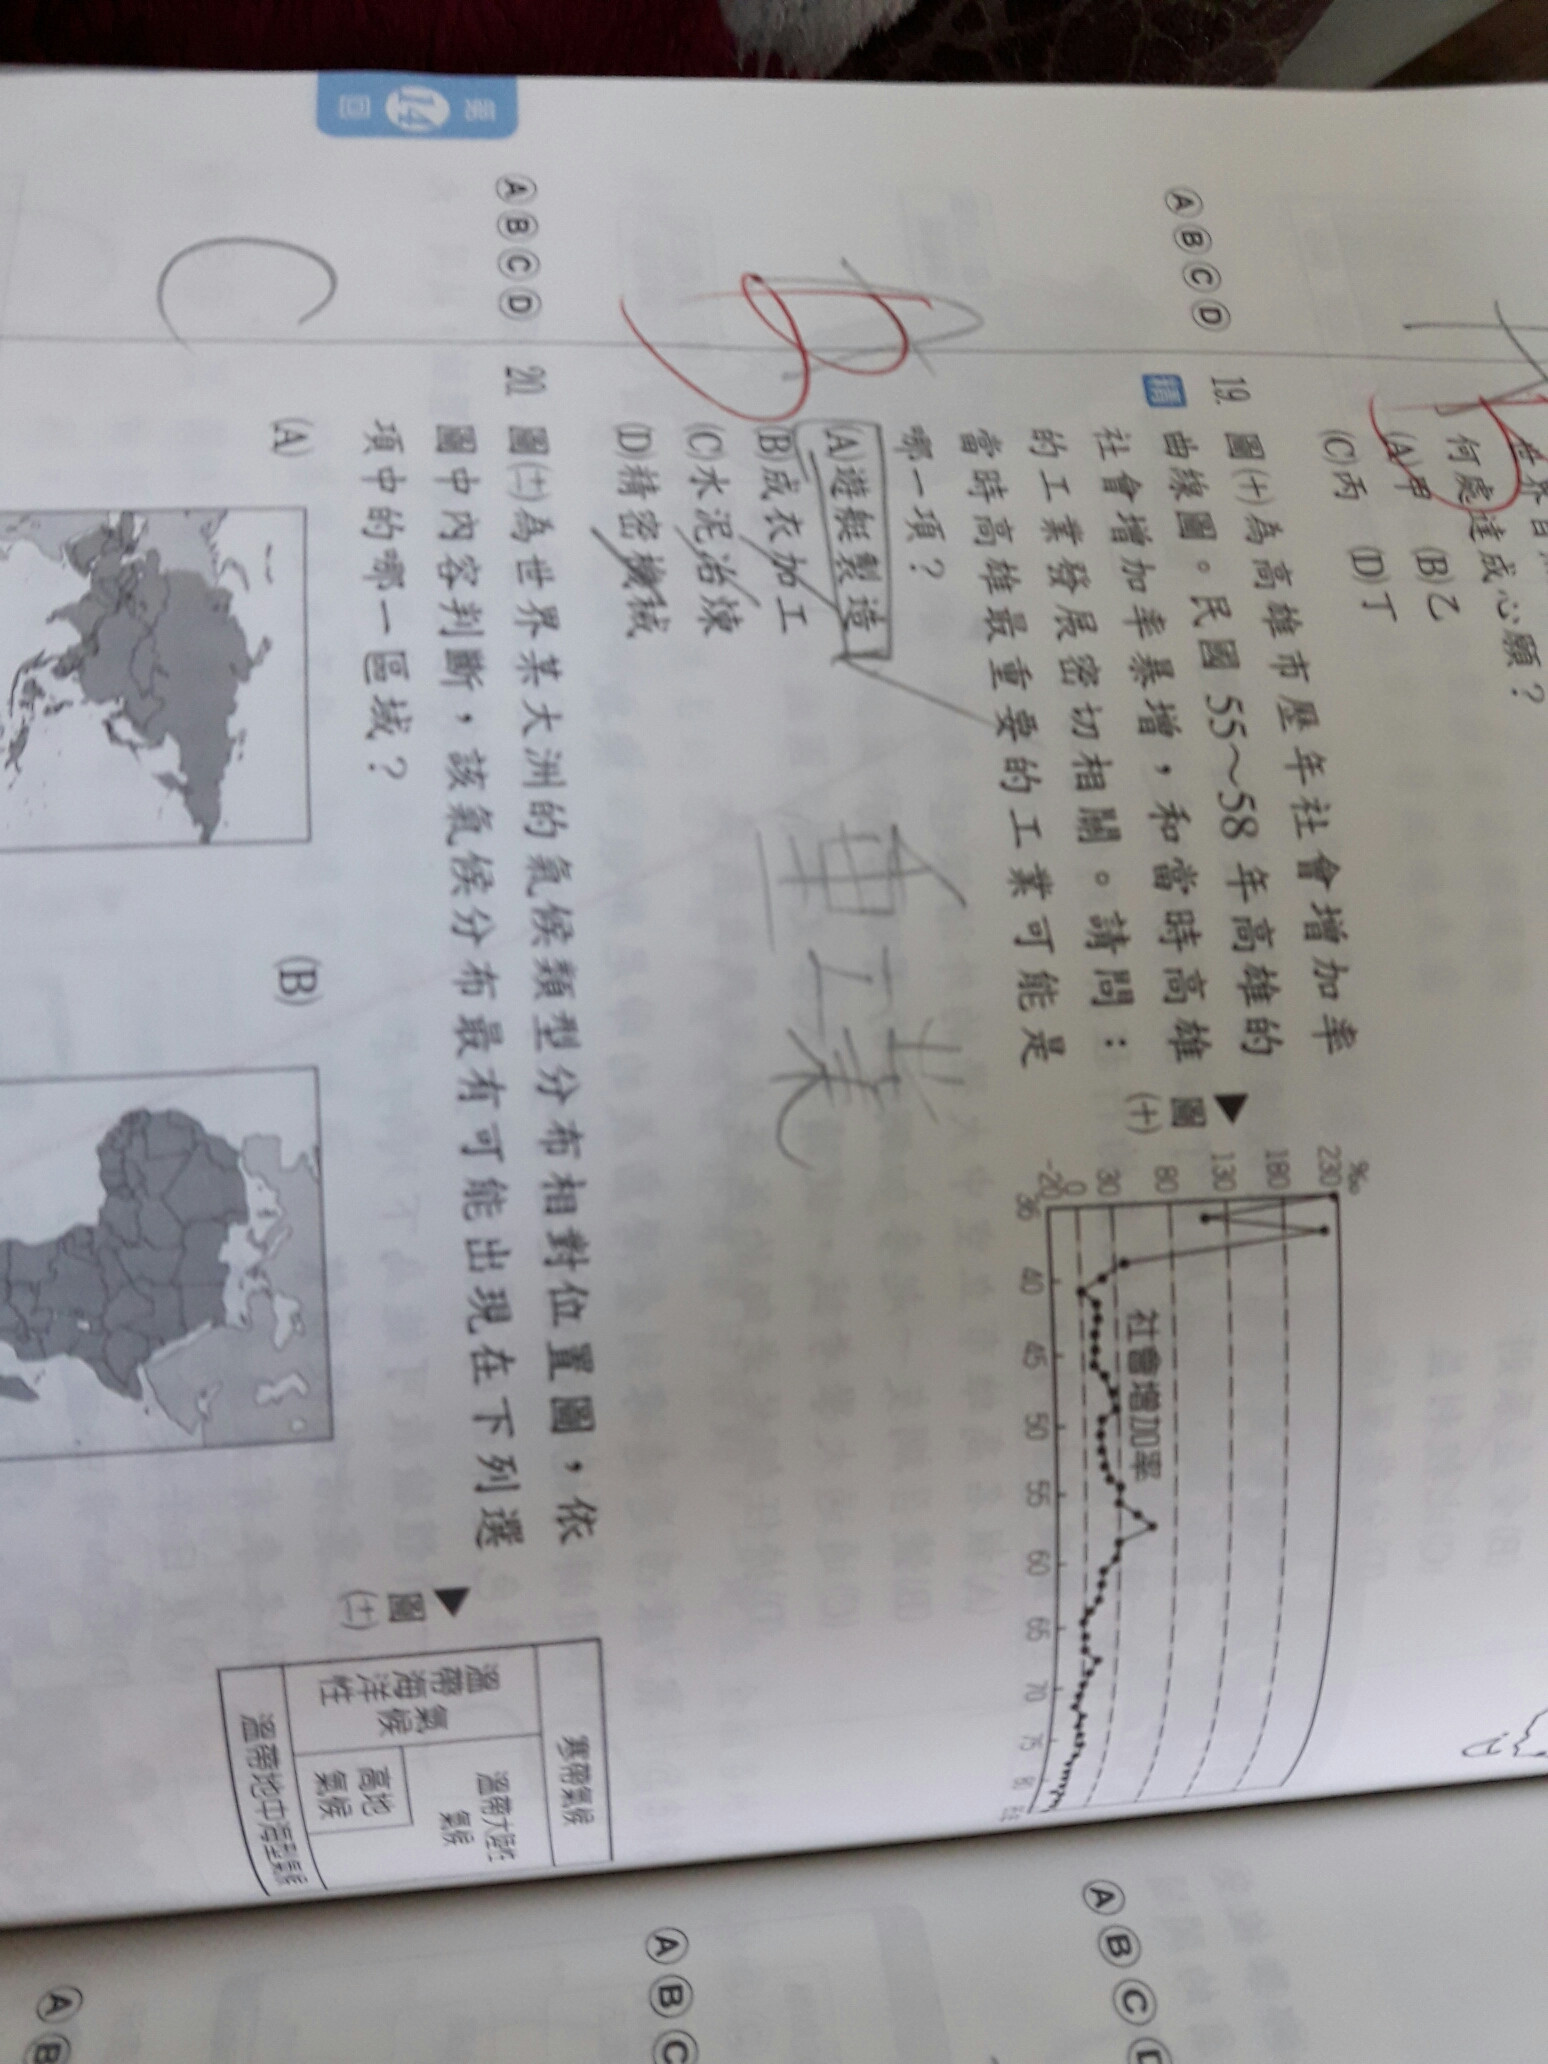 何處達成心願？
(A)甲 (B)乙
(C)丙 (D)丁
ⒶⒷⒸⒹ
19. 圖(十)為高雄市歷年社會增加率
精 曲線圖。民國 55～58 年高雄的
社會增加率暴增，和當時高雄
的工業發展密切相關。請問：
當時高雄最重要的工業可能是
哪一項？
(A)遊艇製造
(B)成衣加工
(C)水泥冶煉
(D)精密機械
B
重工業
圖
(十)
‰
230
180
130
80
30
0
-20
社會增加率
36 40 45 50 55 60 65 70 75
ⒶⒷⒸⒹ
20. 圖(十一)為世界某大洲的氣候類型分布相對位置圖，依
圖中內容判斷，該氣候分布最有可能出現在下列選
項中的哪一區域？
C
(A)
(B)
圖
(十一)
寒帶氣候
溫帶海洋性氣候
溫帶大陸性氣候
高地氣候
溫帶地中海型氣候
第14回
ⒶⒷⒸ
ⒶⒷⒸ
ⒶⒷ